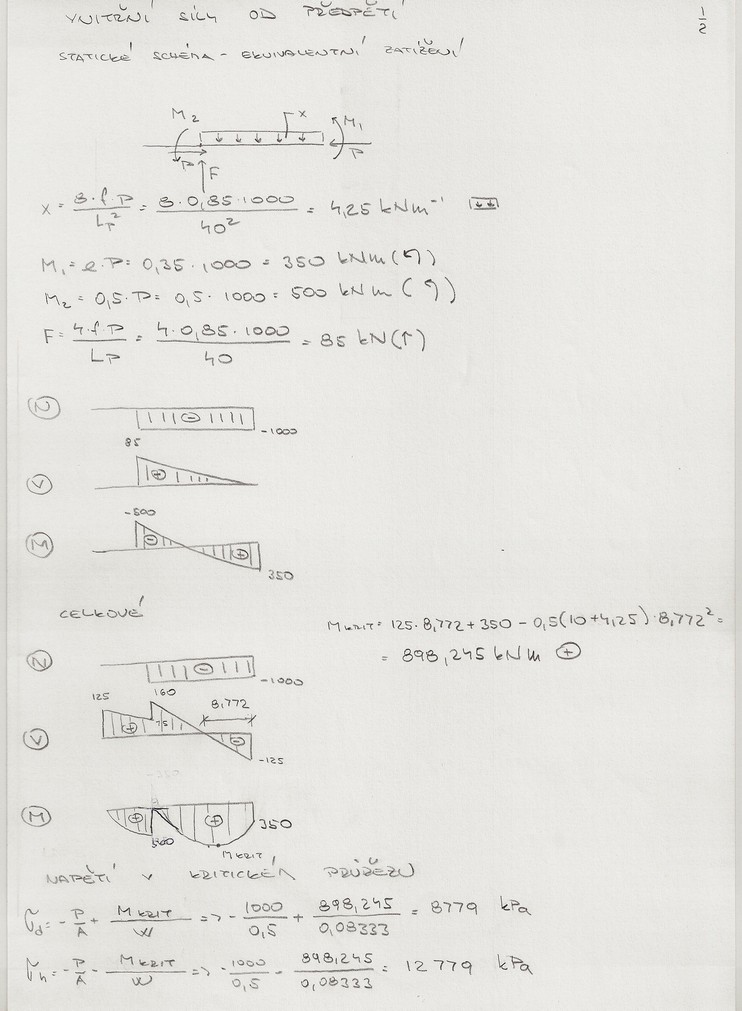 VNITŘNÍ SÍLY OD PŘEDPĚTÍ
1/2
STATICKÉ SCHÉMA - EKVIVALENTNÍ ZATÍŽENÍ
M2 x M1
P F P
x = 8·f·P/LP² = 8·0,85·1000/40² = 4,25 kNm⁻¹
M1 = e·P = 0,35·1000 = 350 kNm (↰)
M2 = 0,5·P = 0,5·1000 = 500 kNm (↰)
F = 4·f·P/LP = 4·0,85·1000/40 = 85 kN (↑)
N - -1000
85
V +
-500
M - +
350
CELKOVÉ
M KRIT = 125·8,772 + 350 - 0,5(10+4,25)·8,772² =
= 898,245 kNm +
N - -1000
125 160 8,772
V + 75 -
-125
M + + 350
500
M KRIT
NAPĚTÍ V KRITICKÉM PRŮŘEZU
σd = -P/A + M KRIT/W => -1000/0,5 + 898,245/0,08333 = 8779 kPa
σh = -P/A - M KRIT/W => -1000/0,5 - 898,245/0,08333 = 12779 kPa